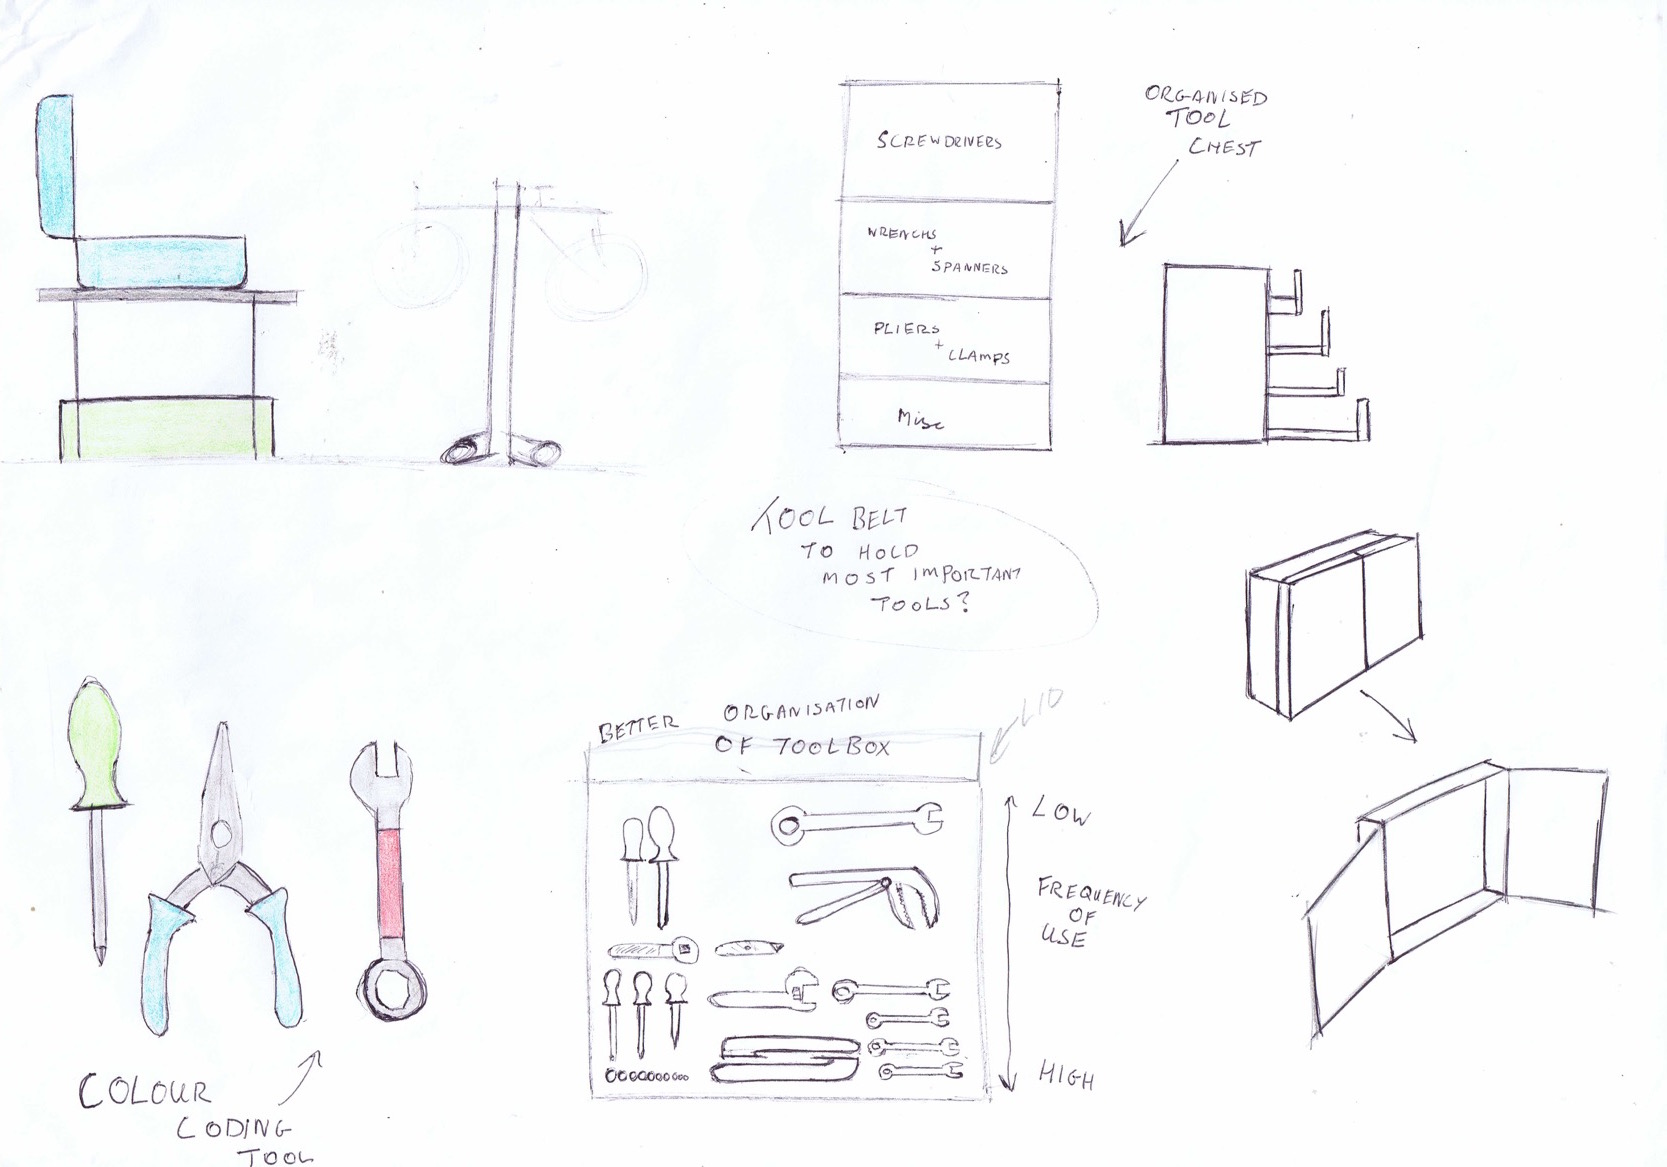 SCREWDRIVERS
WRENCHS
+
SPANNERS
PLIERS
+
CLAMPS
Misc
ORGANISED
TOOL
CHEST
TOOL BELT
TO HOLD
MOST IMPORTANT
TOOLS?
BETTER ORGANISATION
OF TOOLBOX
LID
LOW
FREQUENCY
OF
USE
HIGH
COLOUR
CODING
TOOL